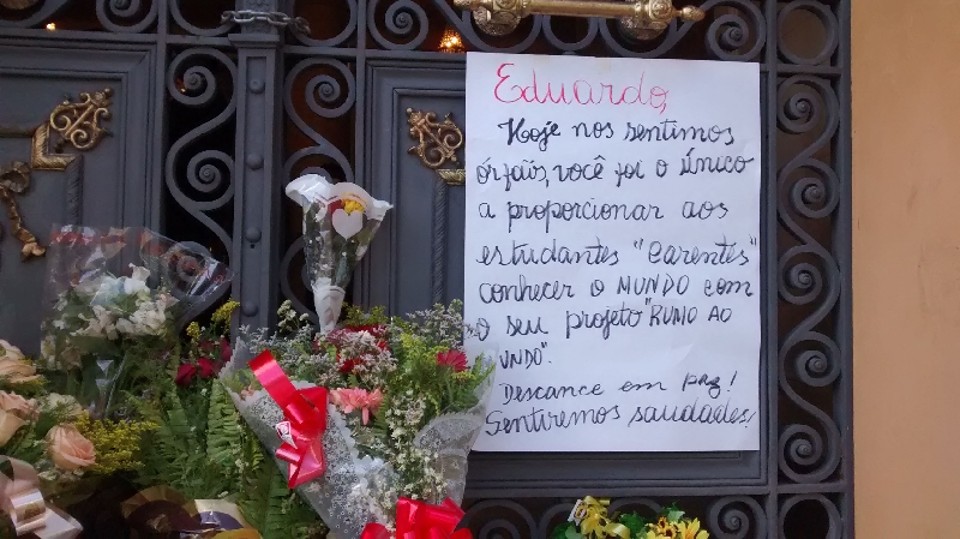 Eduardo,
Hoje nos sentimos
órfãos, você foi o único
a proporcionar aos
estudantes "Carentes"
conhecer o MUNDO com
o seu projeto "RUMO AO
UNDO".
Descance em paz!
Sentiremos saudades!